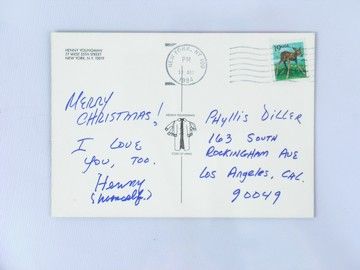 HENNY YOUNGMAN
77 WEST 55TH STREET
NEW YORK, N.Y. 10019
NEW YORK, NY 100
PM
1994
19 USA
MERRY
CHRISTMAS!
I LOVE
YOU, TOO.
Henny
(himself.)
HENNY YOUNGMAN
Phyllis Diller
163 SOUTH
ROCKINGHAM AVE
LOS ANGELES, CAL.
90049